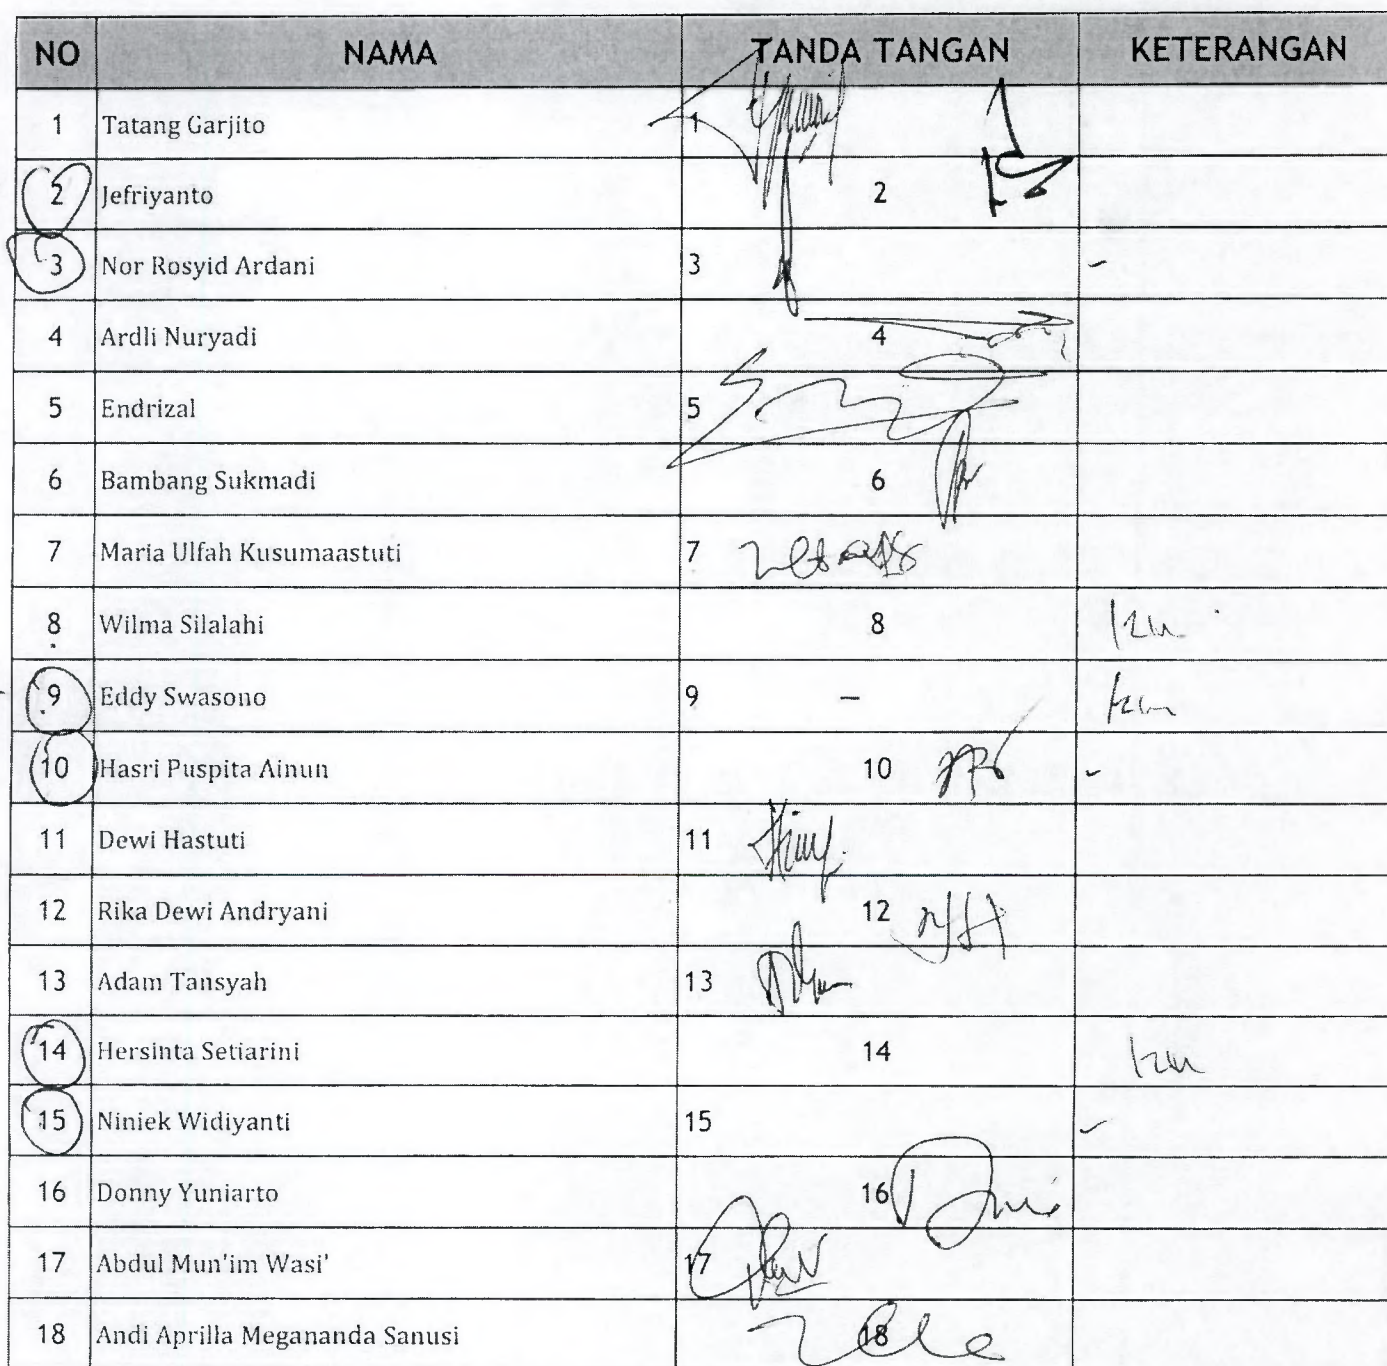 NO NAMA TANDA TANGAN KETERANGAN
1 Tatang Garjito 1
2 Jefriyanto 2
3 Nor Rosyid Ardani 3 -
4 Ardli Nuryadi 4
5 Endrizal 5
6 Bambang Sukmadi 6
7 Maria Ulfah Kusumaastuti 7
8 Wilma Silalahi 8
9 Eddy Swasono 9 -
10 Hasri Puspita Ainun 10 -
11 Dewi Hastuti 11
12 Rika Dewi Andryani 12
13 Adam Tansyah 13
14 Hersinta Setiarini 14
15 Niniek Widiyanti 15 -
16 Donny Yuniarto 16
17 Abdul Mun'im Wasi' 17
18 Andi Aprilla Megananda Sanusi 18